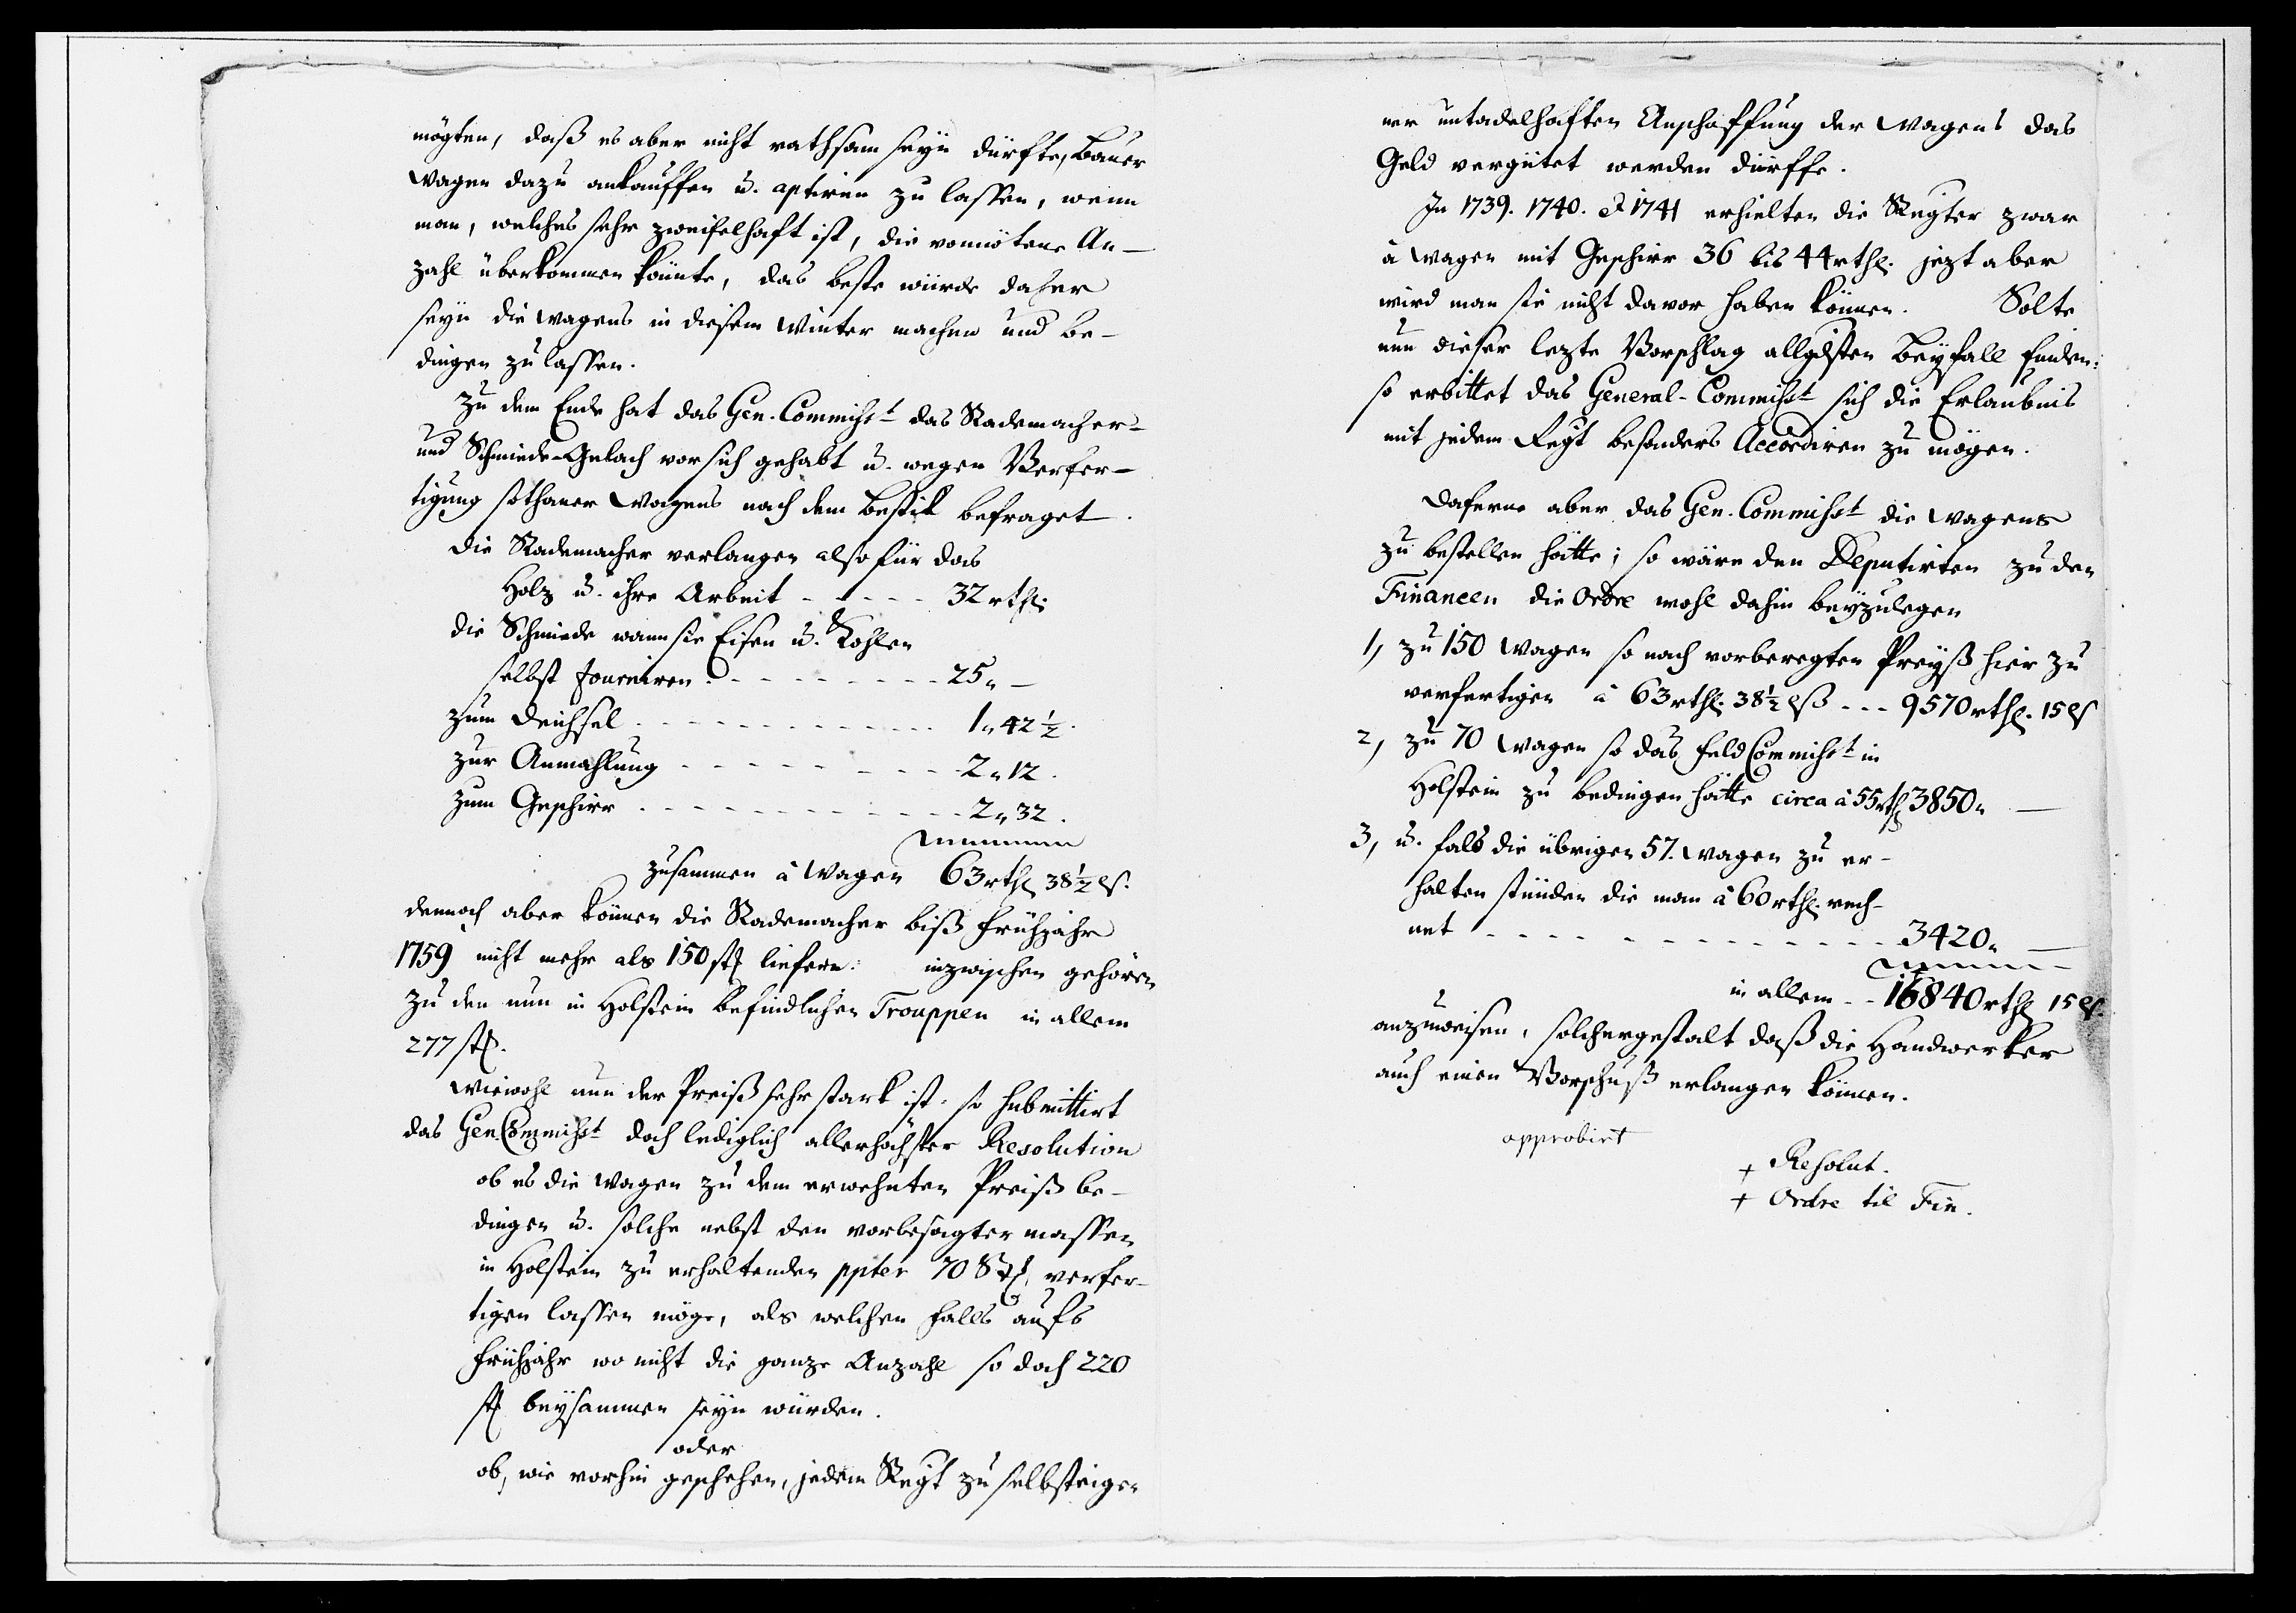 mögten, daß es aber nicht rathsam seyn dürfte, Bauer
Wagen dazu ankauffen u. aptiren zu lassen, wenn
man, welches sehr zweifelhaft ist, die vonnötene An-
zahl überkommen könnte, das beste würde daher
seyn die Wagens in diesem Winter machen und be-
dingen zu lassen.
Zu dem Ende hat das Gen. Commihst das Rademacher-
und Schmiede-Gelach vor sich gehabt u. wegen Verfer-
tigung sothaner Wagens nach dem Bestik befraget.
Die Rademacher verlangen also für das
Holz u. ihre Arbeit - - - - - 32 rthl.
die Schmiede wann sie Eisen u. Kohlen
selbst fourniren - - - - - - - - - 25 " -
zum Deichsel - - - - - - - - - - - 1 " 42 1/2.
zur Anmahlung - - - - - - - - 2 " 12.
zum Geschirr - - - - - - - - - - 2 " 32.
zusammen à Wagen 63 rthl 38 1/2 ls.
dennoch aber können die Rademacher biß Frühjahr
1759 nicht mehr als 150 stl liefern. inzwischen gehören
zu den nun in Holstein befindlichen Trouppen in allem
277 stl.
Wiewohl nun der Preiß sehr stark ist. so submittirt
das Gen Commihst doch lediglich allerhöchster Resolution
ob es die Wagen zu dem erwehnten Preiß be-
dingen u. solche nebst den vorbesagter massen
in Holstein zu erhaltenden ppter 70 Stl, verfer-
tigen lassen möge, als welchen Falls aufs
Frühjahr wo nicht die ganze Anzahl so doch 220
stl beysammen seyn würden.
oder
ob, wie vorhin geschehen, jedem Regt zu selbsteige-
ner untadelhaften Anschaffung der Wagens das
Geld vergütet werden dürffe.
In 1739. 1740. & 1741 erhielten die Regter zwar
à Wagen mit Geschirr 36 bis 44 rthl. jezt aber
wird man sie nicht davor haben können. Solte
nun dieser lezte Vorschlag allgdsten Beyfall finden:
so erbittet das General-Commihst sich die Erlaubnis
mit jedem Regt besonders Accordiren zu mögen.
Daferne aber das Gen. Commihst die Wagens
zu bestellen hätte; so wäre den Deputirten zu den
Financen die Ordre wohl dahin beyzulegen
1, zu 150 Wagen so nach vorberegten Preyß hier zu
verfertigen à 63 rthl. 38 1/2 lß - - - 9570 rthl. 15 ls
2, zu 70 Wagen so das Feld Commihst in
Holstein zu bedingen hätte circa à 55 rthl 3850 " -
3, u. fals die übrigen 57. Wagen zu er-
halten stünden die man à 60 rthl. rech-
net - - - - - - - - - - - - - - - 3420 " -
in allem - - 16840 rthl 15 ls.
anzuweisen, solchergestalt daß die Handwerker
auch einen Vorschuß erlangen können.
approbirt
+ Resolut.
+ Ordre til Fin.